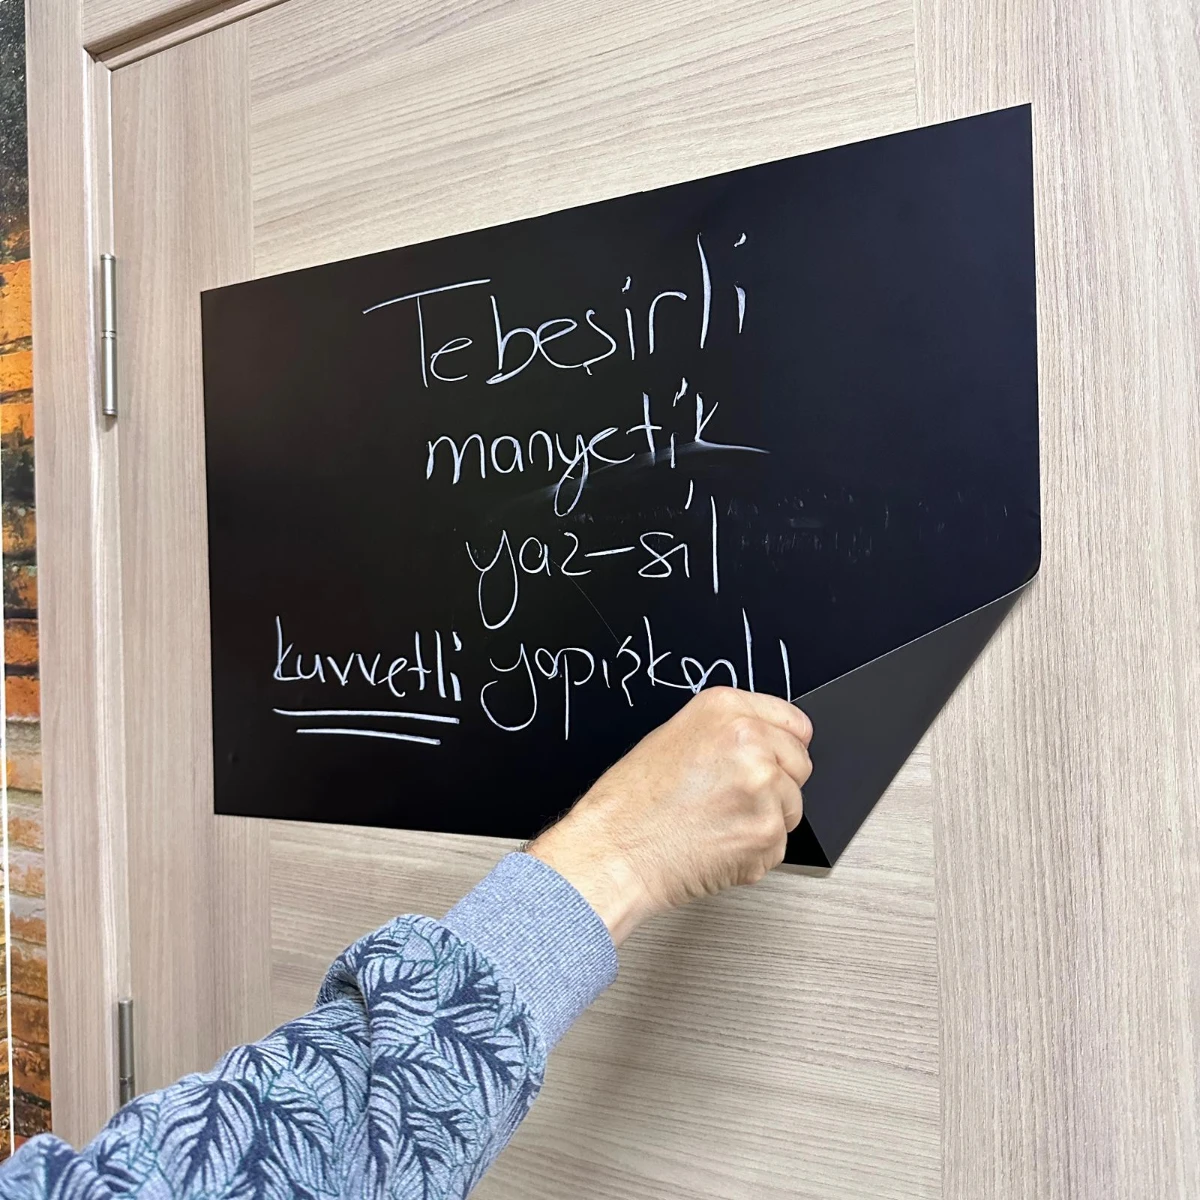 Tebeşirli
manyetik
yaz-sil
kuvvetli yapışkanlı